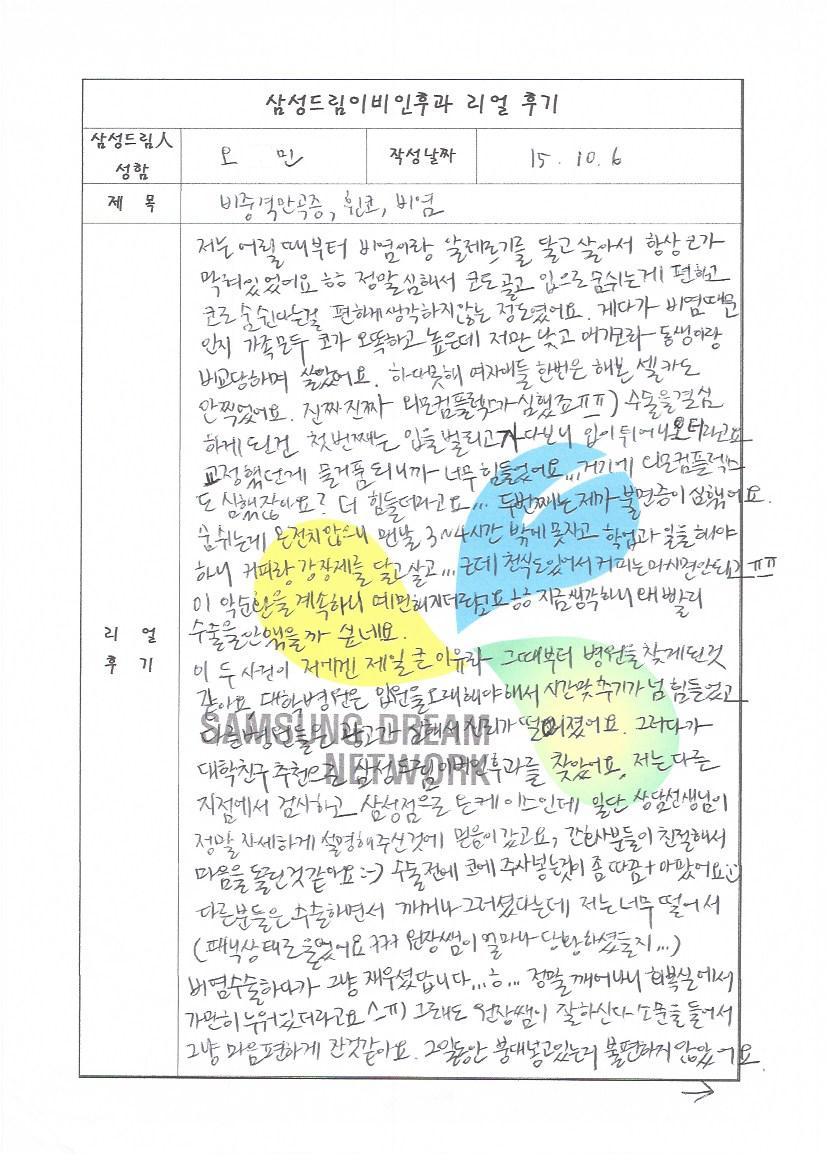 삼성드림이비인후과 리얼 후기
삼성드림人 성함 오 민 작성날짜 15. 10. 6
제 목 비중격만곡증, 휜코, 비염
리 얼 후 기
저는 어릴때부터 비염이랑 알레르기를 달고 살아서 항상 코가
막혀있었어요 ㅎㅎ 정말 심해서 코도 골고 입으로 숨쉬는게 편하고
코로 숨쉰다는걸 편하게 생각하지않는 정도였어요. 게다가 비염때문
인지 가족모두 코가 오똑하고 높은데 저만 낮고 매부리코라 동생이랑
비교당하며 살았어요. 하다못해 여자애들 한번은 해본 셀카도
안찍었어요. 진짜진짜 외모컴플렉스가 심했죠ㅠㅠ) 수술을 결심
하게 된건 첫번째는 입을 벌리고 자다보니 입이 튀어나오더라고요
교정했던게 물거품되니까 너무 힘들었어요... 거기에 외모컴플렉스
도 심했잖아요? 더 힘들더라고요... 두번째는 제가 불면증이 심했어요.
숨쉬는게 온전치않으니 맨날 3~4시간 밖에 못자고 학업과 일을 해야
하니 커피랑 강장제를 달고살고... 근데 천식도있어서 커피는 마시면안되고 ㅠㅠ
이 악순환을 계속하니 예민해지더라고요 ㅎㅎ 지금생각하니 왜 빨리
수술을안했을까 싶네요.
이 두 사건이 저에겐 제일 큰 이유라 그때부터 병원을 찾게된것
같아요 대학병원은 입원을 오래해야해서 시간맞추기가 넘 힘들었고
다른병원들은 광고가 심해서 신뢰가 떨어졌어요. 그러다가
대학친구 추천으로 삼성드림이비인후과를 찾았어요. 저는 다른
지점에서 검사하고 삼성점으로 온케이스인데 일단 상담선생님이
정말 자세하게 설명해주신것에 믿음이 갔고요, 간호사분들이 친절해서
마음을 돌린것같아요 :-) 수술전에 코에 주사놓는것이 좀 따끔+아팠어요
다른분들은 수술하면서 깨거나 그러셨다는데 저는 너무 떨어서
(패닉상태로 울었어요 ㅋㅋㅋ 원장쌤이 얼마나 당황하셨을지...)
비염수술하다가 그냥 재우셨답니다...ㅎ... 정말 깨어나니 회복실에서
가만히 누워있더라고요 ^ㅠ) 그래도 원장쌤이 잘하신다 소문을 들어서
그냥 마음편하게 잔것같아요. 그일동안 붕대넣고있는데 불편하지 않았어요
→
SAMSUNG DREAM
NETWORK